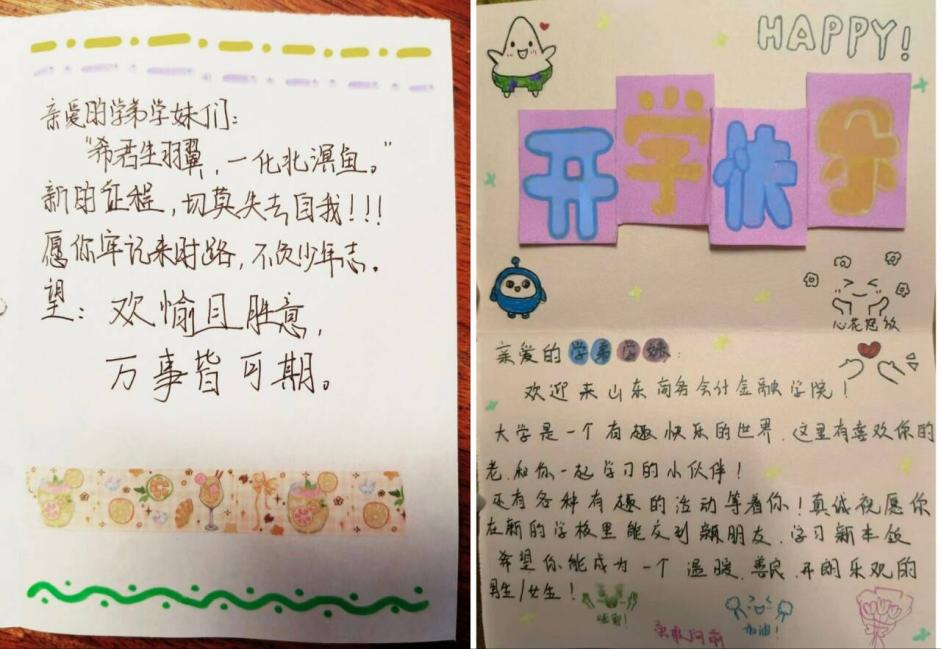 亲爱的学弟学妹们:
"希君生羽翼,一化北溟鱼。"
新的征程,切莫失去自我!!!
愿你牢记来时路,不负少年志。
望:欢愉且胜意,
万事皆可期。
HAPPY!
开学快乐
心花怒放
亲爱的学弟学妹:
欢迎来山东商务会计金融学院!
大学是一个有趣快乐的世界,这里有喜欢你的
老,和你一起学习的小伙伴!
还有各种有趣的活动等着你!真诚祝愿你
在新的学校里能交到新朋友,学习新本领
希望你能成为一个温暖、善良、开朗乐观的
男生/女生!
加油!